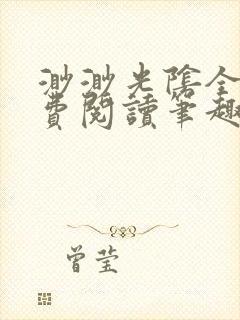 渺渺光陰全
費閱讀筆趣
曾莹